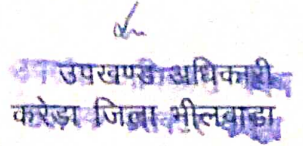 उपखण्ड अधिकारी
करेड़ा जिला भीलवाड़ा